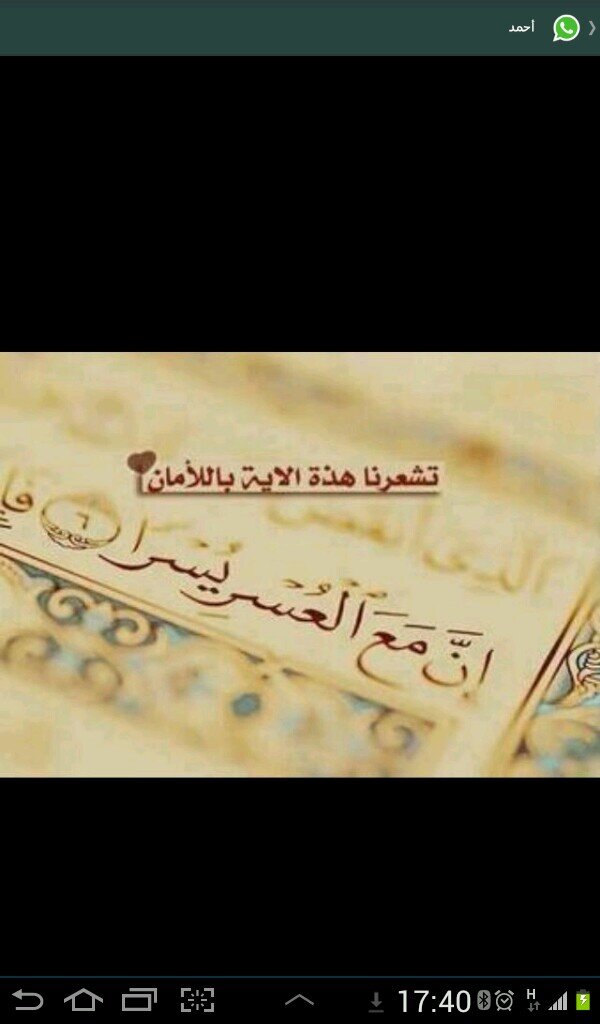 أحمد
تشعرنا هذة الاية باللأمان
الذي أنقض
إِنَّ مَعَ الْعُسْرِ يُسْرًا ٦ فَإِ
17:40
H